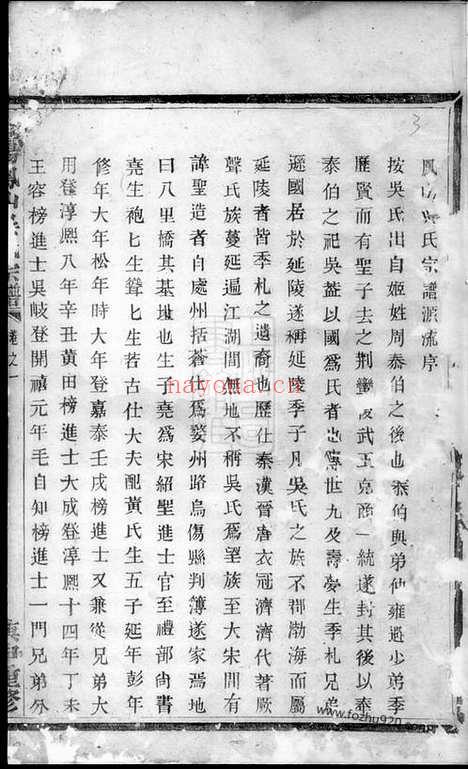 3
鳳山吳氏宗譜源流序
按吳氏出自姬姓周泰伯之後也泰伯與弟仲雍避少弟季
歷賢而有聖子去之荆蠻及武王克商一統遂封其後以奉
泰伯之祀吳蓋以國爲氏者也傳世九及壽夢生季札兄弟
遜國居於延陵遂稱延陵季子凡吳氏之族不郡渤海而屬
延陵者皆季札之遺裔也歷仕秦漢晉唐衣冠濟濟代著厥
聲氏族蔓延遍江湖間無地不稱吳氏爲望族至大宋間有
諱聖造者自處州括蒼氏爲婺州路烏傷縣判簿遂家焉地
曰八里橋其基址也生子堯爲宋紹聖進士官至禮部尙書
堯生袍匕生聳匕生若古仕大夫配黃氏生五子延年彭年
修年大年松年時大年登嘉泰壬戌榜進士又兼從兄弟大
用登淳熙八年辛丑黃田榜進士大成登淳熙十四年丁未
王容榜進士吳岐登開禧元年毛自知榜進士一門兄弟外
宗譜
重修
hayona.cn
www.fozhu920.com